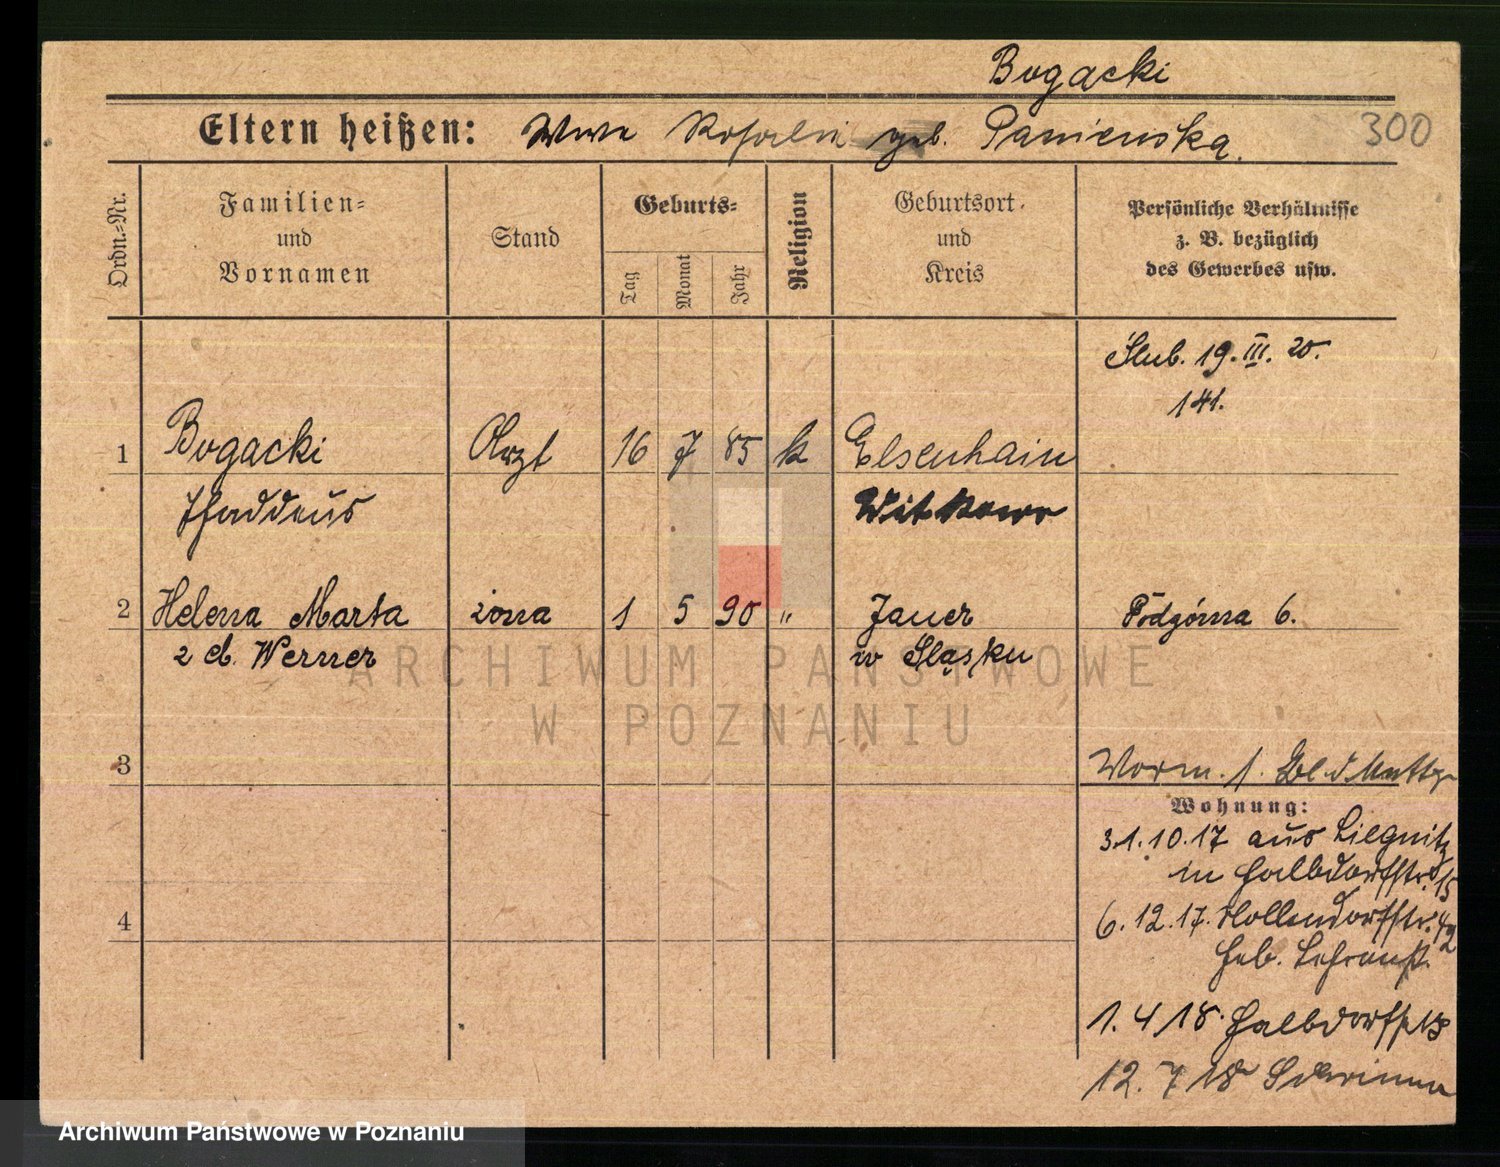 Bogacki
Eltern heißen: Wwe Rosalie geb. Panienska. 300
Ordn.-Nr.
Familien-
und
Vornamen
Stand
Geburts-
Tag
Monat
Jahr
Religion
Geburtsort
und
Kreis
Persönliche Verhältnisse
z. B. bezüglich
des Gewerbes usw.
Ślub. 19. III. 20.
141.
1 Bogacki Arzt 16 7 85 k Elsenhain
Thaddeus Witkowo
2 Helena Marta żona 1 5 90 " Jauer Podgórna 6.
z d. Werner w Śląsku
ARCHIWUM PAŃSTWOWE
W POZNANIU
3
Vorm. 1. Bl. d. Mutter
Wohnung:
31.10.17 aus Liegnitz
in Halbdorfstr. 15
4
6.12.17. Hollendorfstr. 42
1. 4 18. Halbdorfstr
12. 7 18
Archiwum Państwowe w Poznaniu